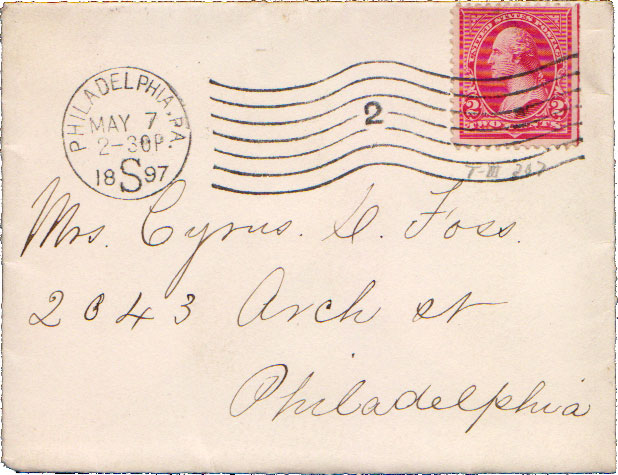 PHILADELPHIA, PA.
MAY 7
2-30P.
18 S 97
2
UNITED STATES POSTAGE
2 2
TWO CENTS
T-III
Mrs. Cyrus. D. Foss.
2043 Arch st
Philadelphia